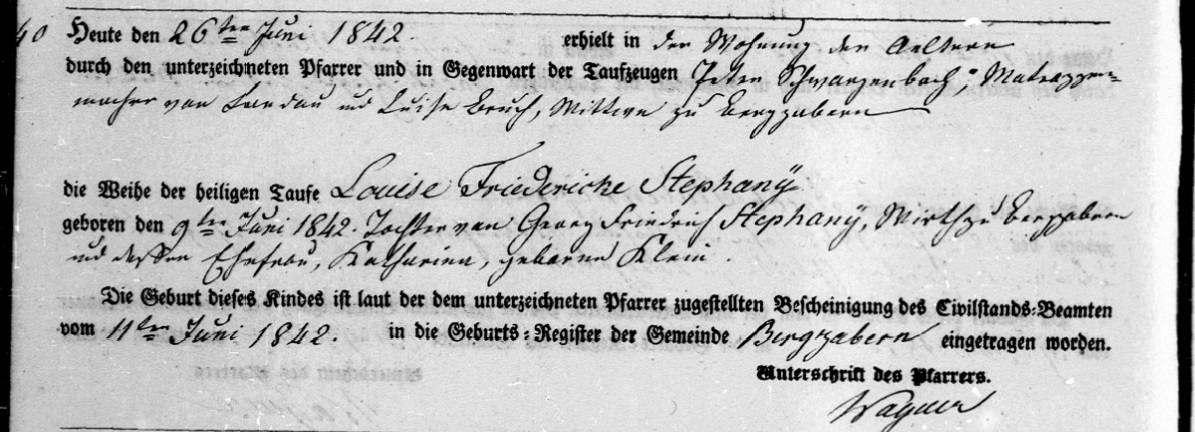 40 Heute den 26ten Juni 1842. erhielt in der Wohnung der Aeltern
durch den unterzeichneten Pfarrer und in Gegenwart der Taufzeugen Peter Schwarzenbach, Matrazzen-
macher von Landau und Luise Bruch, Wittwe zu Bergzabern
die Weihe der heiligen Taufe Louise Friedericke Stephanÿ
geboren den 9ten Juni 1842. Tochter von Georg Friedrich Stephanÿ, Wirth zu Bergzabern
und dessen Ehefrau, Katharina, geborne Klein.
Die Geburt dieses Kindes ist laut der dem unterzeichneten Pfarrer zugestellten Bescheinigung des Civilstands-Beamten
vom 11ten Juni 1842. in die Geburts-Register der Gemeinde Bergzabern eingetragen worden.
Unterschrift des Pfarrers.
Wagner